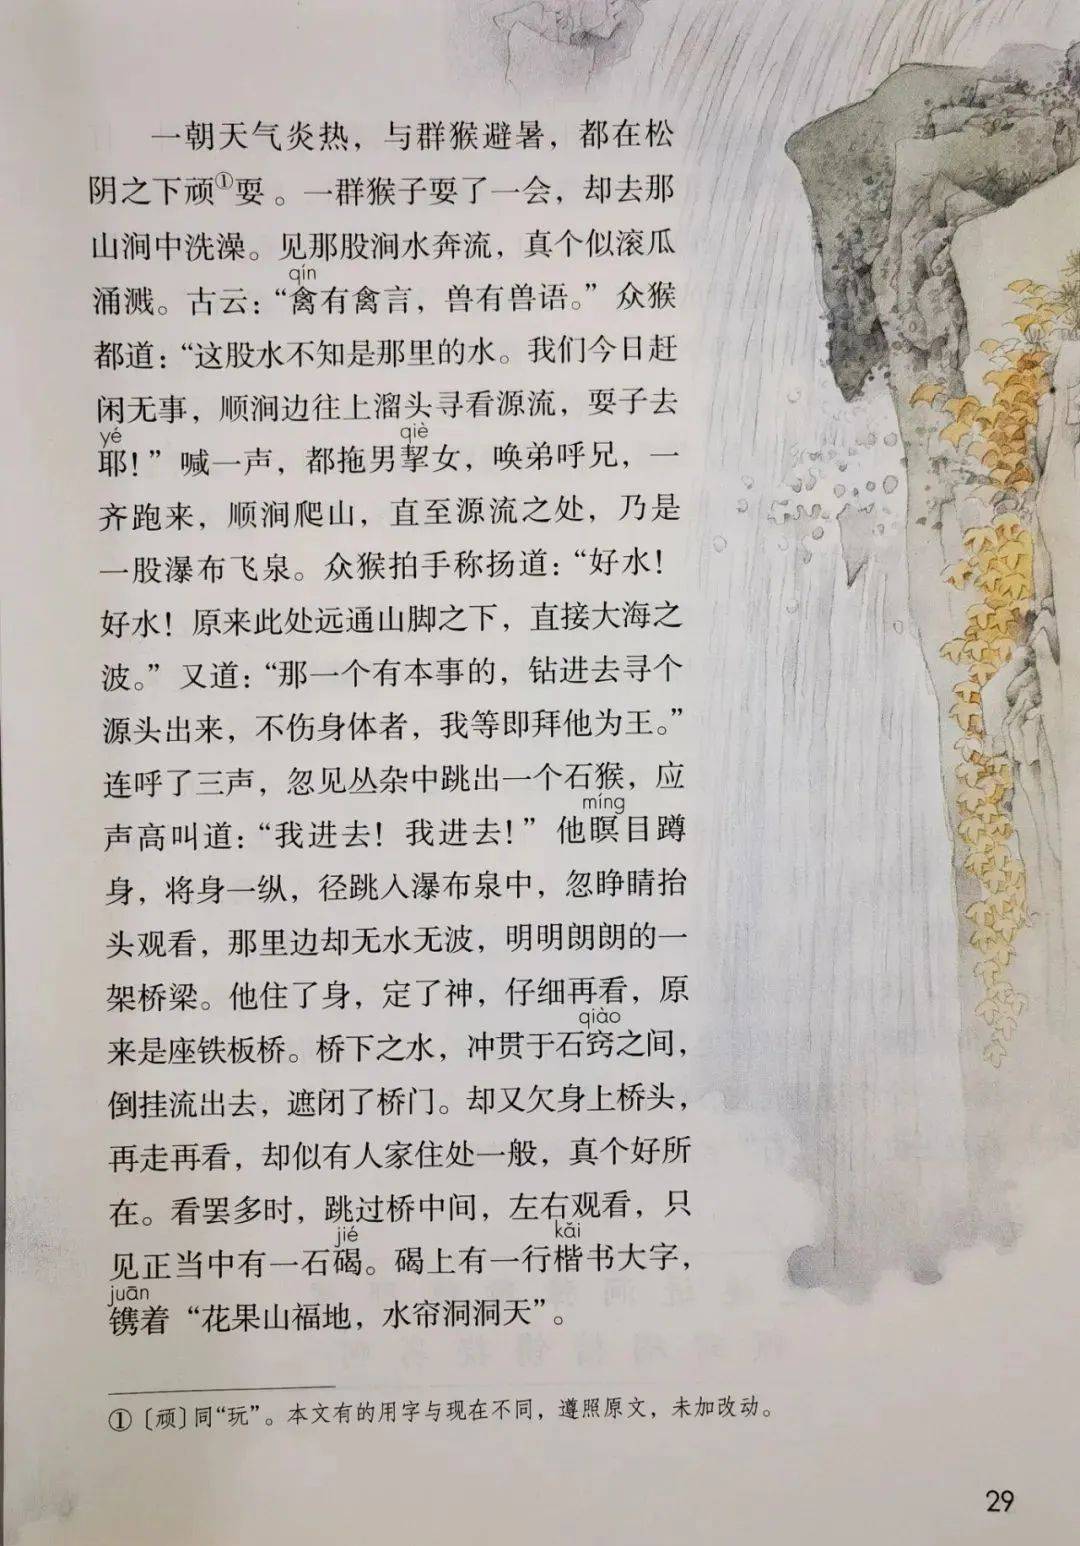 一朝天气炎热，与群猴避暑，都在松
阴之下顽①耍。一群猴子耍了一会，却去那
山涧中洗澡。见那股涧水奔流，真个似滚瓜
qín
涌溅。古云：“禽有禽言，兽有兽语。”众猴
都道：“这股水不知是那里的水。我们今日赶
闲无事，顺涧边往上溜头寻看源流，耍子去
yé qiè
耶！”喊一声，都拖男挈女，唤弟呼兄，一
齐跑来，顺涧爬山，直至源流之处，乃是
一股瀑布飞泉。众猴拍手称扬道：“好水！
好水！原来此处远通山脚之下，直接大海之
波。”又道：“那一个有本事的，钻进去寻个
源头出来，不伤身体者，我等即拜他为王。”
连呼了三声，忽见丛杂中跳出一个石猴，应
míng
声高叫道：“我进去！我进去！”他瞑目蹲
身，将身一纵，径跳入瀑布泉中，忽睁睛抬
头观看，那里边却无水无波，明明朗朗的一
架桥梁。他住了身，定了神，仔细再看，原
qiào
来是座铁板桥。桥下之水，冲贯于石窍之间，
倒挂流出去，遮闭了桥门。却又欠身上桥头，
再走再看，却似有人家住处一般，真个好所
在。看罢多时，跳过桥中间，左右观看，只
jié kǎi
见正当中有一石碣。碣上有一行楷书大字，
juān
镌着“花果山福地，水帘洞洞天”。
①〔顽〕同“玩”。本文有的用字与现在不同，遵照原文，未加改动。
29